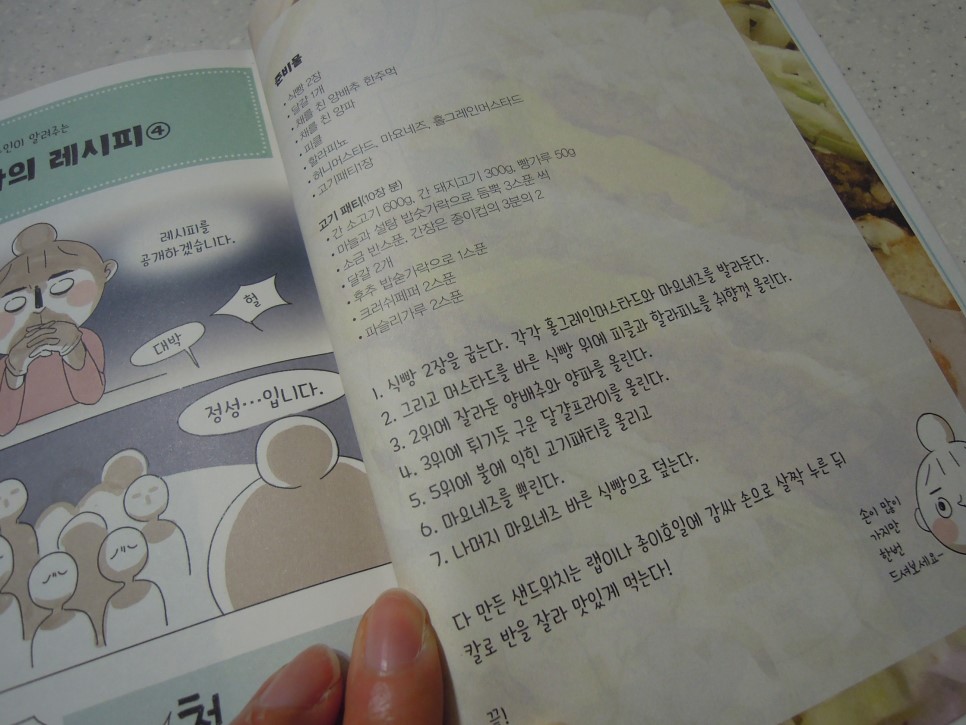 알려주는
레시피④
레시피를
공개하겠습니다.
헐
대박
정성…입니다.
준비물
• 식빵 2장
• 달걀 1개
• 채를 친 양배추 한주먹
• 채를 친 양파
• 피클
• 할라피뇨
• 허니머스타드, 마요네즈, 홀그레인머스타드
• 고기패티1장
고기 패티(10장 분)
• 간 소고기 600g, 간 돼지고기 300g, 빵가루 50g
• 마늘과 설탕 밥숫가락으로 듬뿍 3스푼 씩
• 소금 반스푼, 간장은 종이컵의 3분의 2
• 달걀 2개
• 후추 밥숟가락으로 1스푼
• 크러쉬페퍼 2스푼
• 파슬리가루 2스푼
1. 식빵 2장을 굽는다. 각각 홀그레인머스타드와 마요네즈를 발라둔다.
2. 그리고 머스타드를 바른 식빵 위에 피클과 할라피뇨를 취향껏 올린다.
3. 2위에 잘라둔 양배추와 양파를 올린다.
4. 3위에 튀기듯 구운 달걀프라이를 올린다.
5. 5위에 불에 익힌 고기패티를 올리고
6. 마요네즈를 뿌린다.
7. 나머지 마요네즈 바른 식빵으로 덮는다.
다 만든 샌드위치는 랩이나 종이호일에 감싸 손으로 살짝 누른 뒤
칼로 반을 잘라 맛있게 먹는다!
끝!
손이 많이
가지만
한번
드셔보세요~